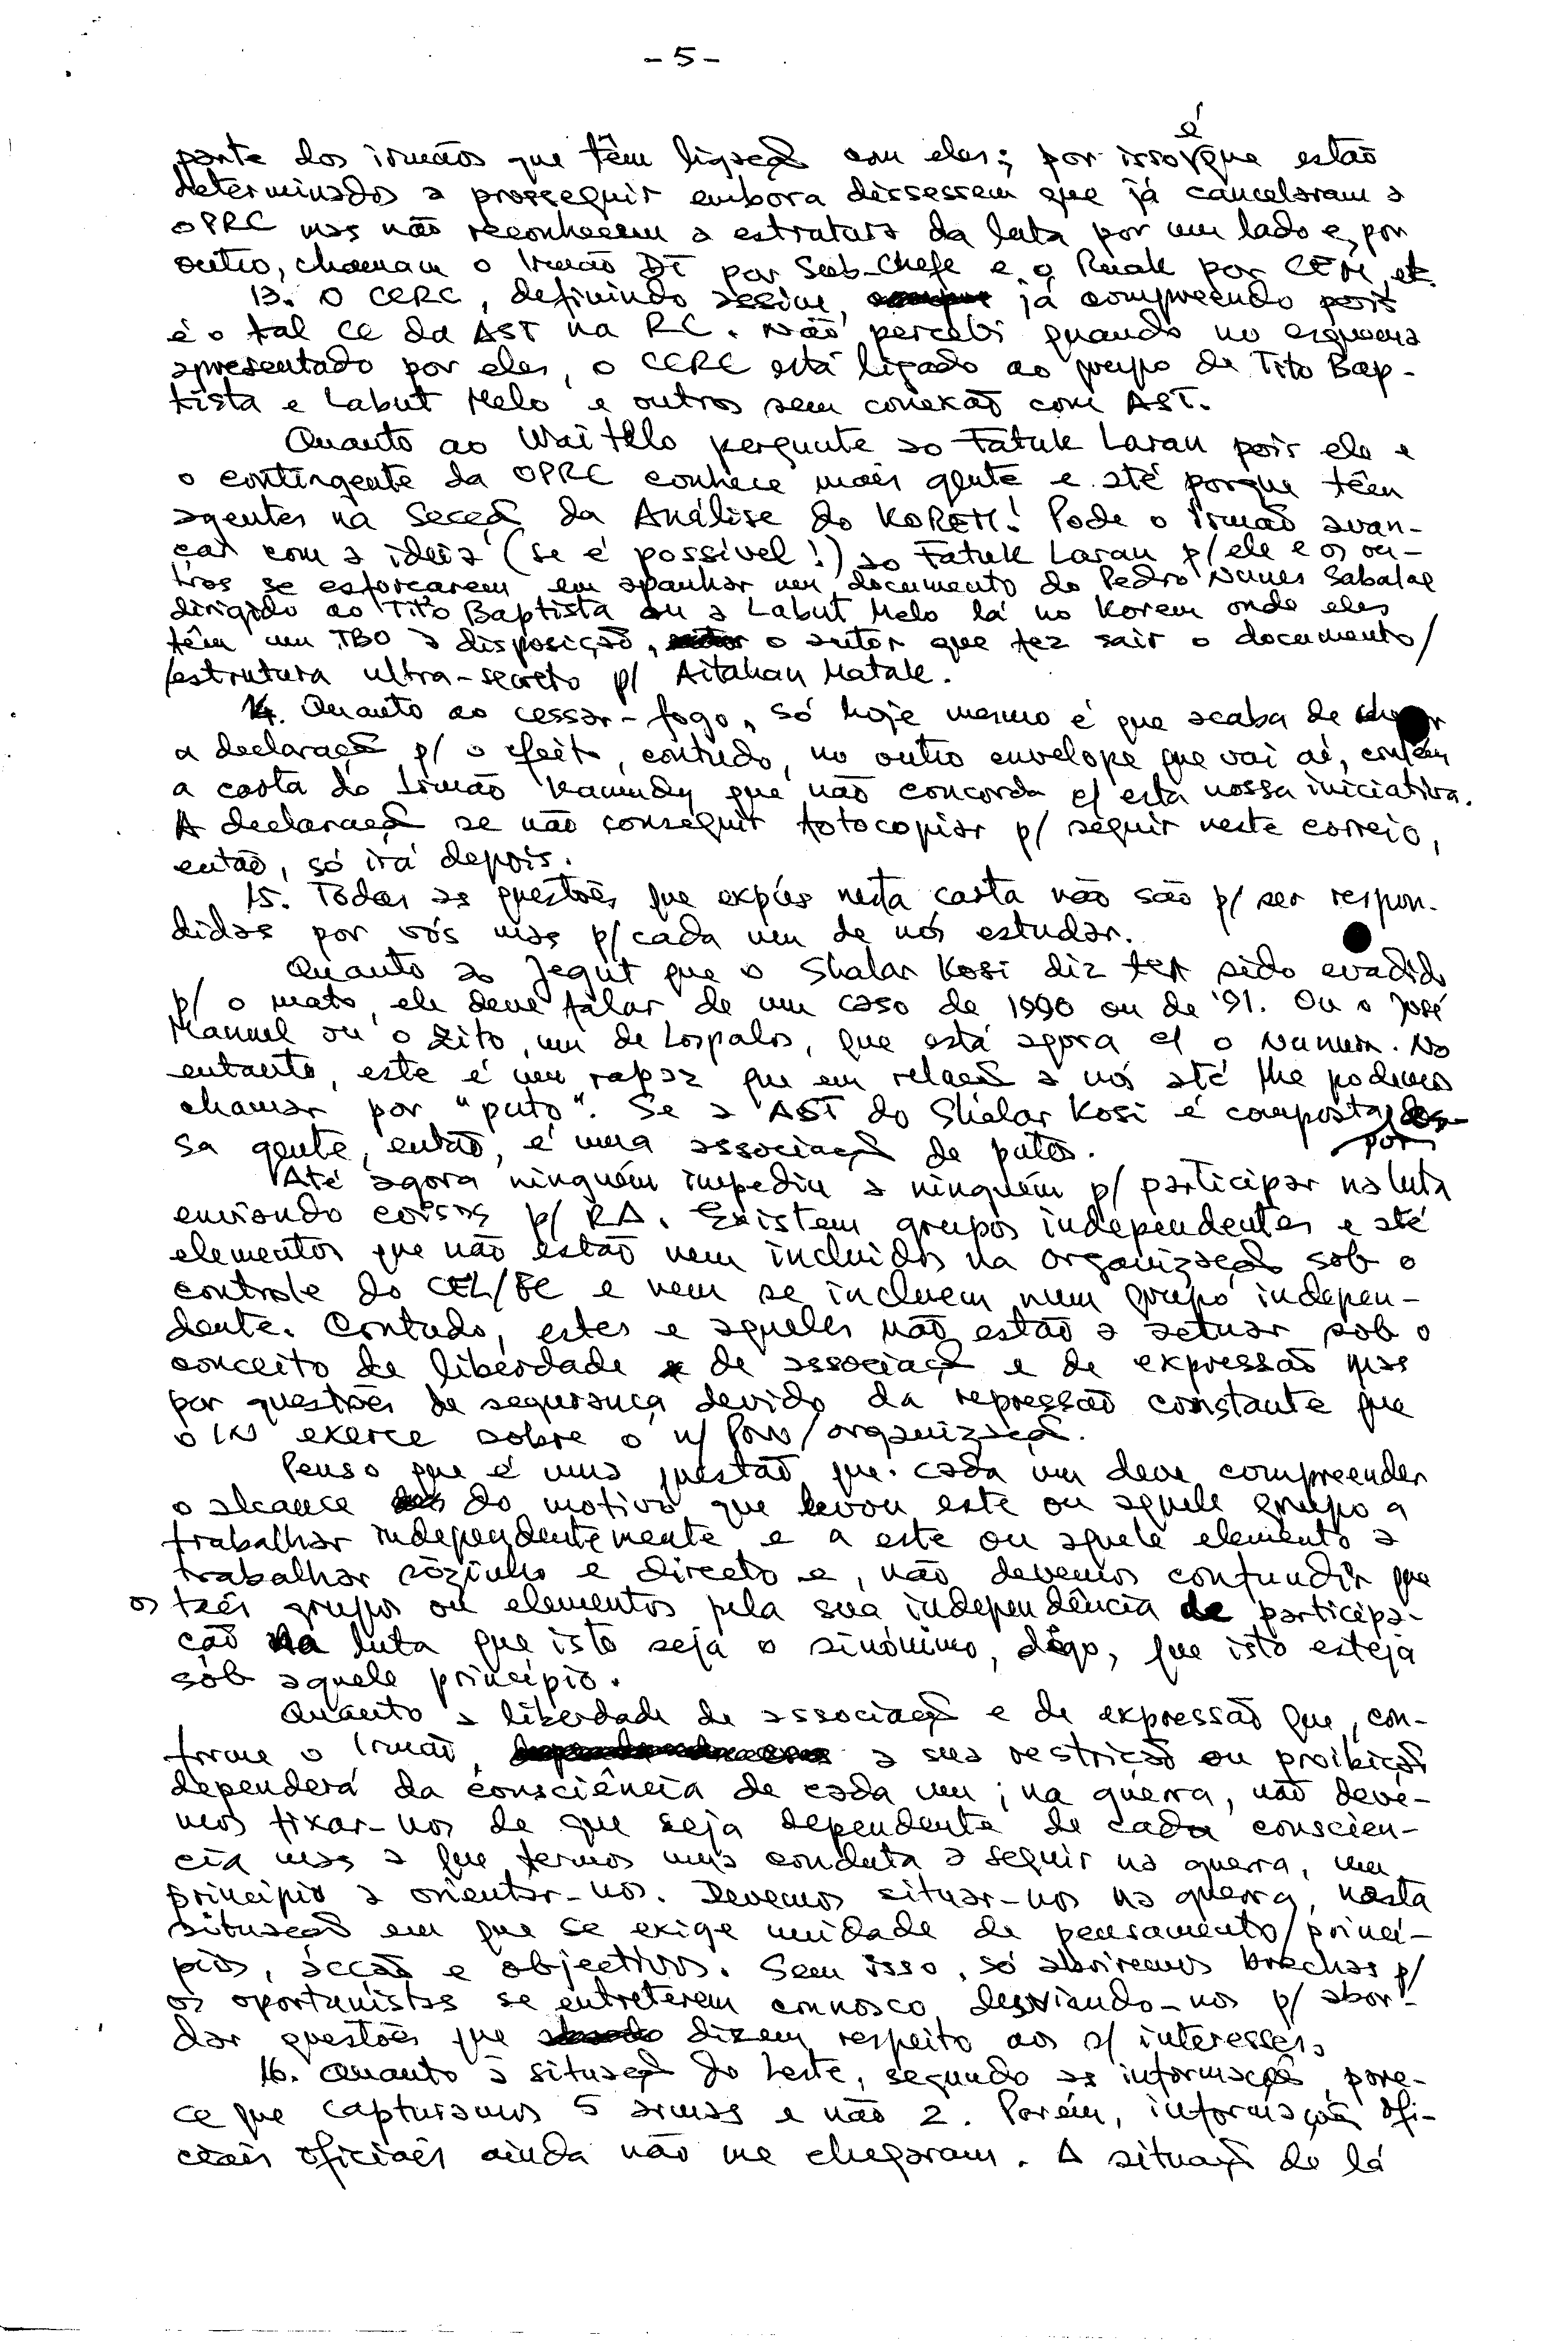 - 5 -
parte dos irmãos que têm ligação com eles; por isso é que estão
determinados a prosseguir embora dissessem que já cancelaram a
OPRC mas não reconhecem a estrutura da luta por um lado e, por
outro, chamam o Irmão DT por Sub-Chefe e o Ruak por CEM, etc.
13. O CERC, definindo assim, já compreendo pois
é o tal CE da AST na RC. Não percebi quando no esquema
apresentado por eles, o CERC está ligado ao grupo de Tito Bap-
tista e Labut Melo e outros sem conexão com AST.
Quanto ao Wai Hilo pergunte ao Fatuk Laran pois ele e
o contingente da OPRC conhece mais gente e até porque têm
agentes na Secção da Análise do KOREM! Pode o Irmão avan-
çar com a ideia (se é possível!) ao Fatuk Laran p/ ele e os ou-
tros se esforçarem em apanhar um documento do Pedro Nunes Sabalae
dirigido ao Tito Baptista ou a Labut Melo lá no Korem onde eles
têm um TBO à disposição, o autor que fez sair o documento/
/estrutura ultra-secreto p/ Aitahan Matak.
14. Quanto ao cessar-fogo, só hoje mesmo é que acaba de
a declaração p/ o efeito, contudo, no outro envelope que vai aí, contém
a carta do Irmão Karundy que não concorda c/ esta nossa iniciativa.
A declaração se não conseguir fotocopiar p/ seguir neste correio,
então, só irá depois.
15. Todas as questões que expús nesta carta não são p/ ser respon-
didas por vós mas p/ cada um de nós estudar.
Quanto ao Jegut que o Shalar Kosi diz ter sido evadido
p/ o mato, ele deve falar de um caso de 1990 ou de '91. Ou o José
Manuel ou o Zito, um de Lospalos, que está agora c/ o Nunun. No
entanto, este é um rapaz que em relação a nós até lhe podemos
chamar por "puto". Se a AST do Shalar Kosi é composta por des-
sa gente, então, é uma associação de putos.
Até agora ninguém impediu a ninguém p/ participar na luta
enviando coisas p/ RA. Existem grupos independentes e até
elementos que não estão nem incluidos na organização sob o
controle do CEL/FC e nem se incluem num grupo indepen-
dente. Contudo, estes e aqueles não estão a actuar sob o
conceito de liberdade de associação e de expressão mas
por questões de segurança devido da repressão constante que
o IN exerce sobre o n/ Povo/organização.
Penso que é uma questão que cada um deve compreender
o alcance do motivo que levou este ou aquele grupo a
trabalhar independentemente e a este ou aquele elemento a
trabalhar sòzinho e directo e, não devemos confundir que
os tais grupos ou elementos pela sua independência de participa-
ção na luta que isto seja o sinónimo, digo, que isto esteja
sob aquele princípio.
Quanto à liberdade de associação e de expressão que, con-
forme o Irmão, a sua restrição ou proibição
dependerá da consciência de cada um; na guerra, não deve-
mos fixar-nos de que seja dependente de cada conscien-
cia mas a que termos uma conduta a seguir na guerra, um
princípio a orientar-nos. Devemos situar-nos na guerra, nesta
situação em que se exige unidade de pensamento/princí-
pios, acção e objectivos. Sem isso, só abriremos brechas p/
os oportunistas se entreterem connosco, desviando-nos p/ abor-
dar questões que dizem respeito aos s/ interesses.
16. Quanto à situação do Leste, segundo as informações, pare-
ce que capturamos 5 armas e não 2. Porém, informações ofi-
ciais oficiais ainda não me chegaram. A situação de lá